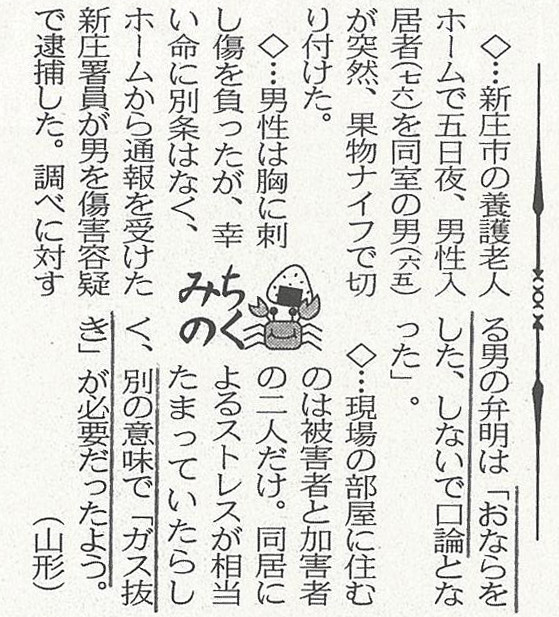 ◇…新庄市の養護老人
ホームで五日夜、男性入
居者(七六)を同室の男(六五)
が突然、果物ナイフで切
り付けた。
◇…男性は胸に刺
し傷を負ったが、幸
い命に別条はなく、
ホームから通報を受けた
新庄署員が男を傷害容疑
で逮捕した。調べに対す
る男の弁明は「おならを
した、しないで口論とな
った」。
◇…現場の部屋に住む
のは被害者と加害者
の二人だけ。同居に
よるストレスが相当
たまっていたらし
く、別の意味で「ガス抜
き」が必要だったよう。
(山形)
みち
のく